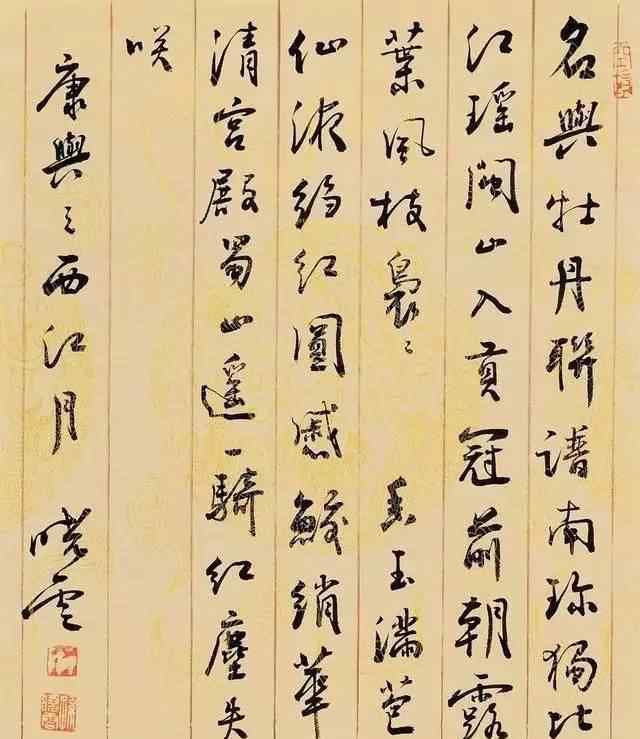 名與牡丹聯譜南珍獨比
江瑶閩山入貢冠前朝露
葉風枝裊々 香玉滿苞
仙液絳红圓蹙鮫綃華
清宫殿蜀山遥一騎红塵失
咲
康與之西江月 曉雲